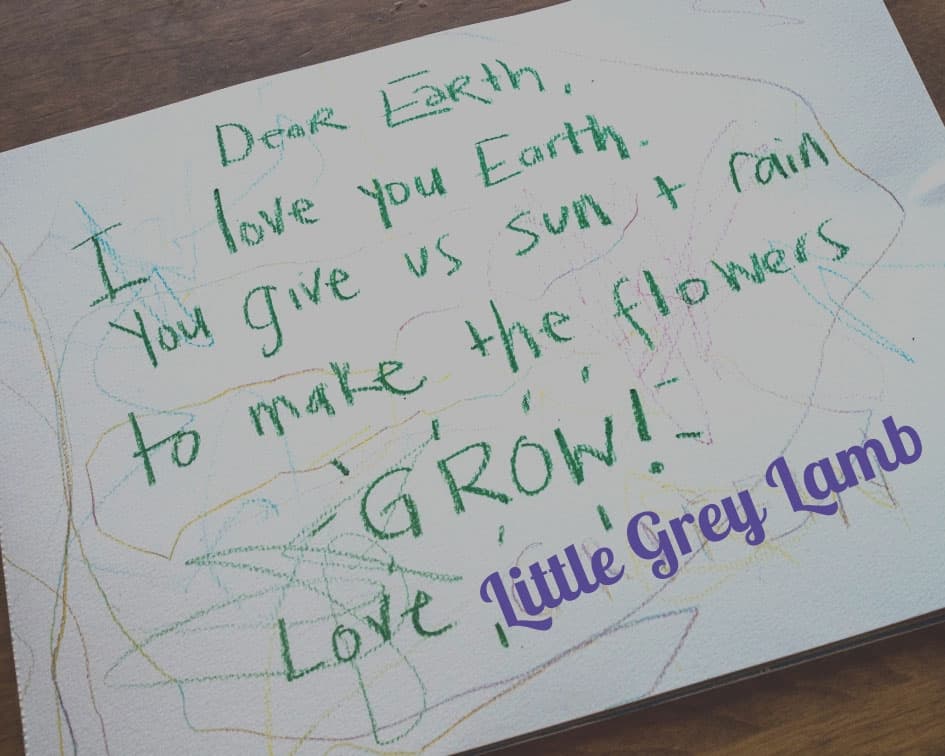 Dear Earth,
I love you Earth.
You give us sun + rain
to make the flowers
GROW!
Love, Little Grey Lamb